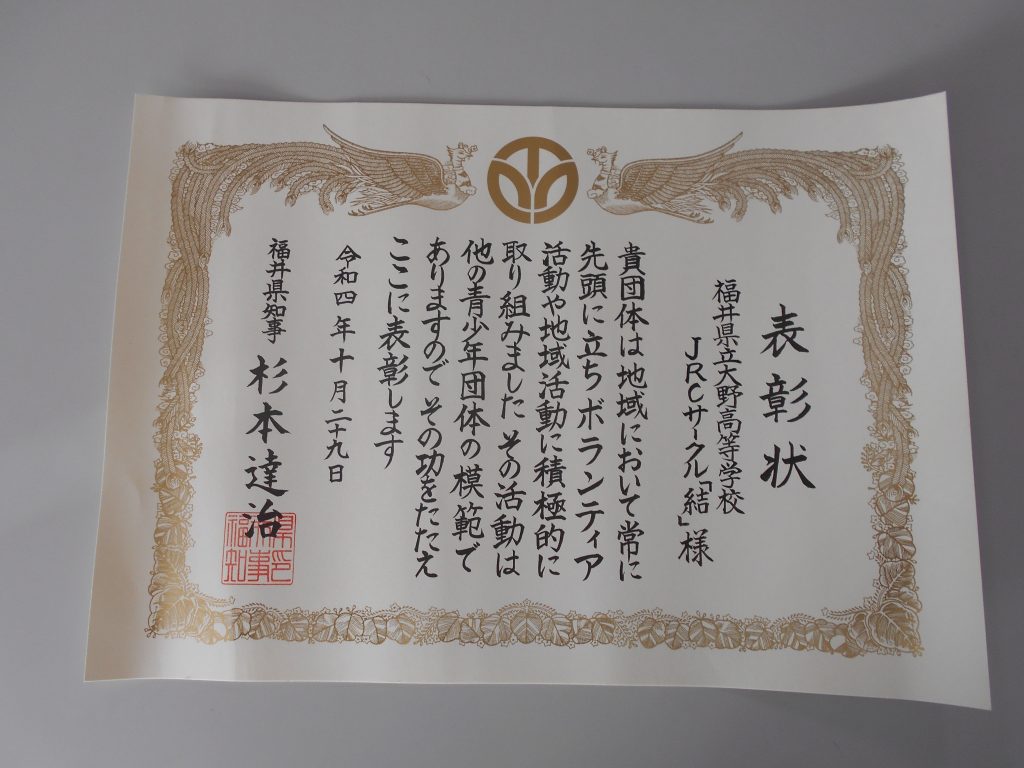 表彰状
福井県立大野高等学校
JRCサークル「結」様
貴団体は地域において常に
先頭に立ちボランティア
活動や地域活動に積極的に
取り組みました その活動は
他の青少年団体の模範で
ありますので その功をたたえ
ここに表彰します
令和四年十月二十九日
福井県知事 杉本達治